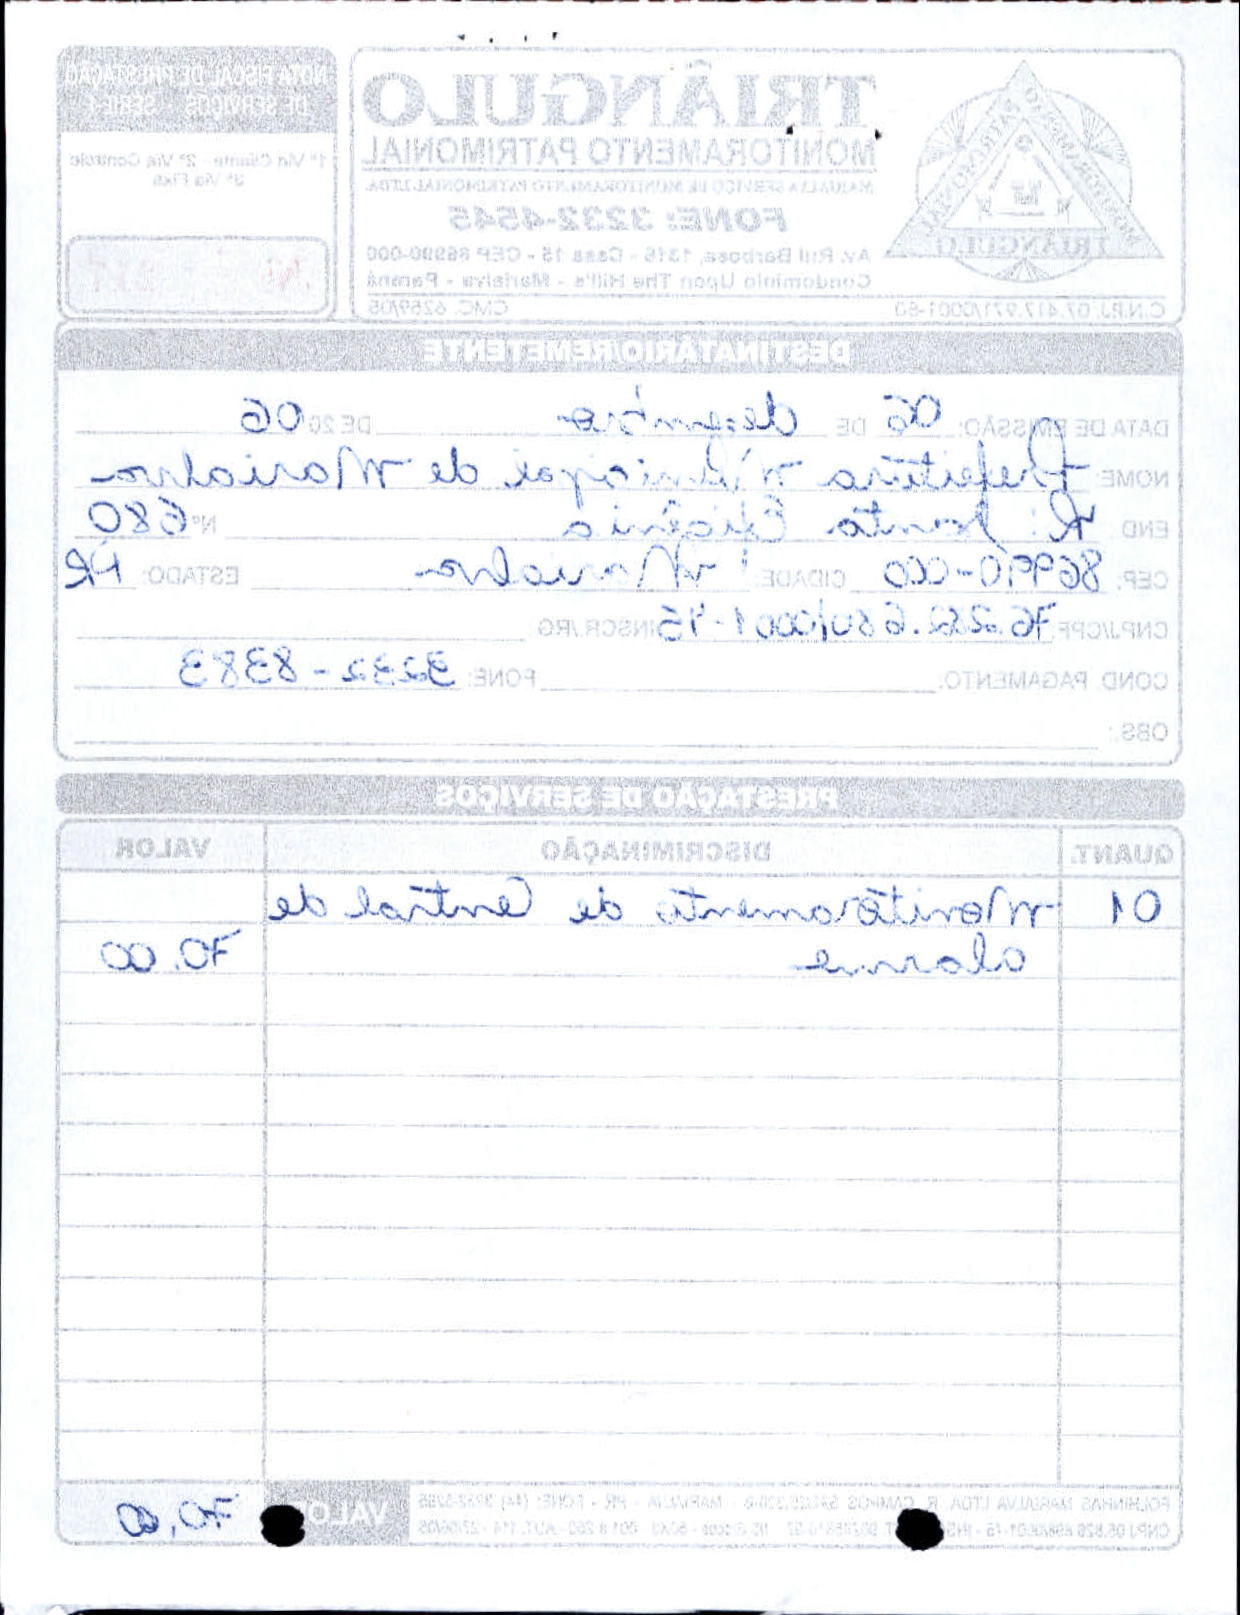 NOTA FISCAL DE PRESTAÇÃO
DE SERVIÇOS - SÉRIE F
1ª Via Cliente - 2ª Via Controle
3ª Via Fixa
Nº
TRIÂNGULO
MONITORAMENTO PATRIMONIAL
FONE: 3232-4545
Av. Rui Barbosa, 1316 - Casa 15 - CEP 86990-000
Condomínio Upon The Hills - Marialva - Paraná
C.N.P.J. 07.417.971/0001-60 CMC. 6259/05
MONITORAMENTO PATRIMONIAL
TRIÂNGULO
DESTINATÁRIO REMETENTE
DATA DE EMISSÃO: 06 DE dezembro DE 2006
NOME: Prefeitura Municipal de Marialva
END. R: Santa Efigênia Nº 680
CEP: 86990-000 CIDADE: Marialva ESTADO: PR
CNPJ/CPF 76.282.680/0001-45 INSCR./RG
COND. PAGAMENTO: FONE: 3232-8383
OBS.:
PRESTAÇÃO DE SERVIÇOS
QUANT. DISCRIMINAÇÃO VALOR
01 Monitoramento de Central de
alarme 70.00
FOLHINHAS MARIALVA LTDA. R. CAMPOS SALES - MARIALVA - PR - FONE: (44)
VALO 70,00